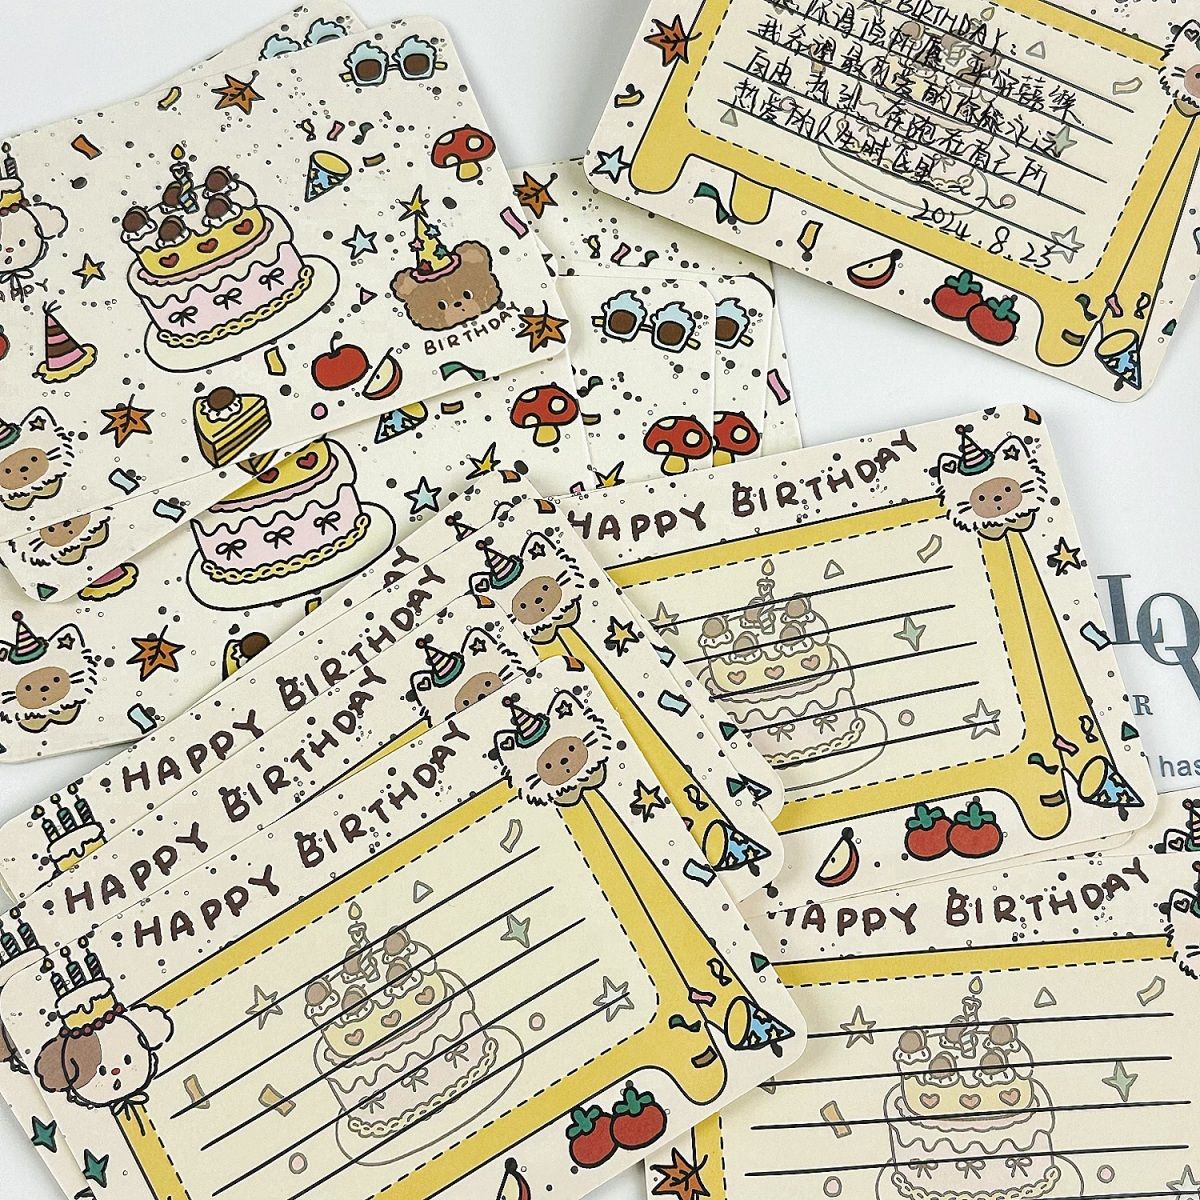 BIRTHDAY
我希望最可爱的你能永远
自由热烈,在跑在自己所
热爱的人生时区里
2024.8.23
HAPPY
BIRTHDAY
HAPPY BIRTHDAY
HAPPY BIRTHDAY
HAPPY BIRTHDAY
HAPPY BIRTHDAY
HAPPY BIRTHDAY
LQ
R
has